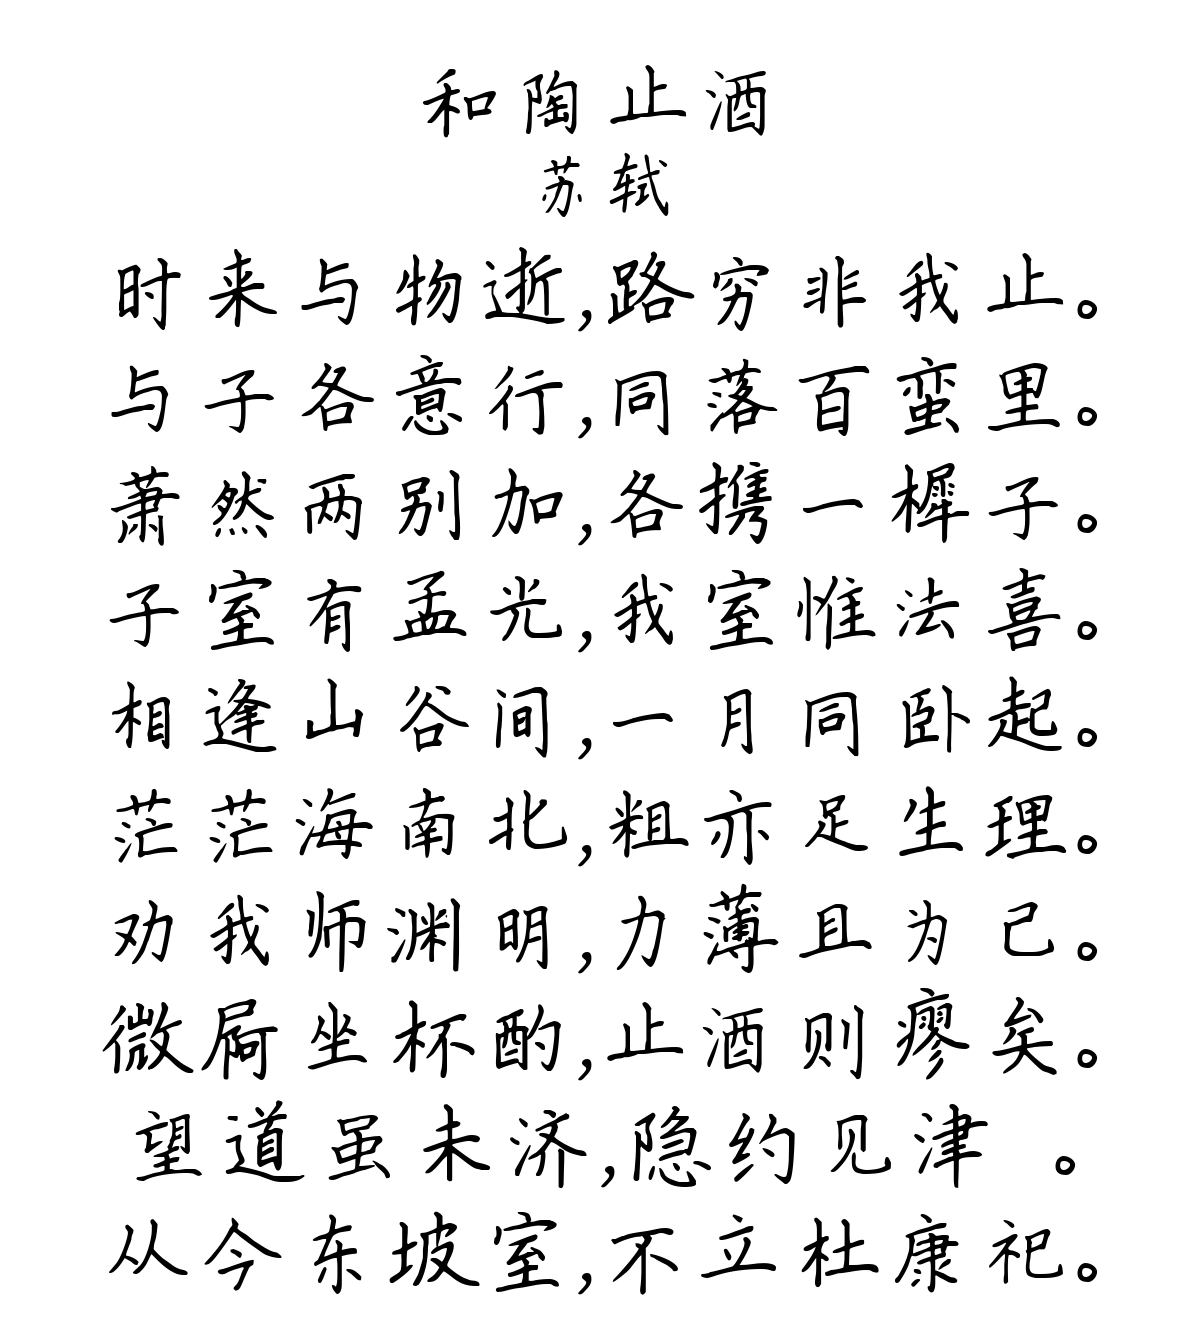 和陶止酒
苏轼
时来与物逝,路穷非我止。
与子各意行,同落百蛮里。
萧然两别加,各携一樨子。
子室有孟光,我室惟法喜。
相逢山谷间,一月同卧起。
茫茫海南北,粗亦足生理。
劝我师渊明,力薄且为己。
微屙坐杯酌,止酒则瘳矣。
望道虽未济,隐约见津 。
从今东坡室,不立杜康祀。